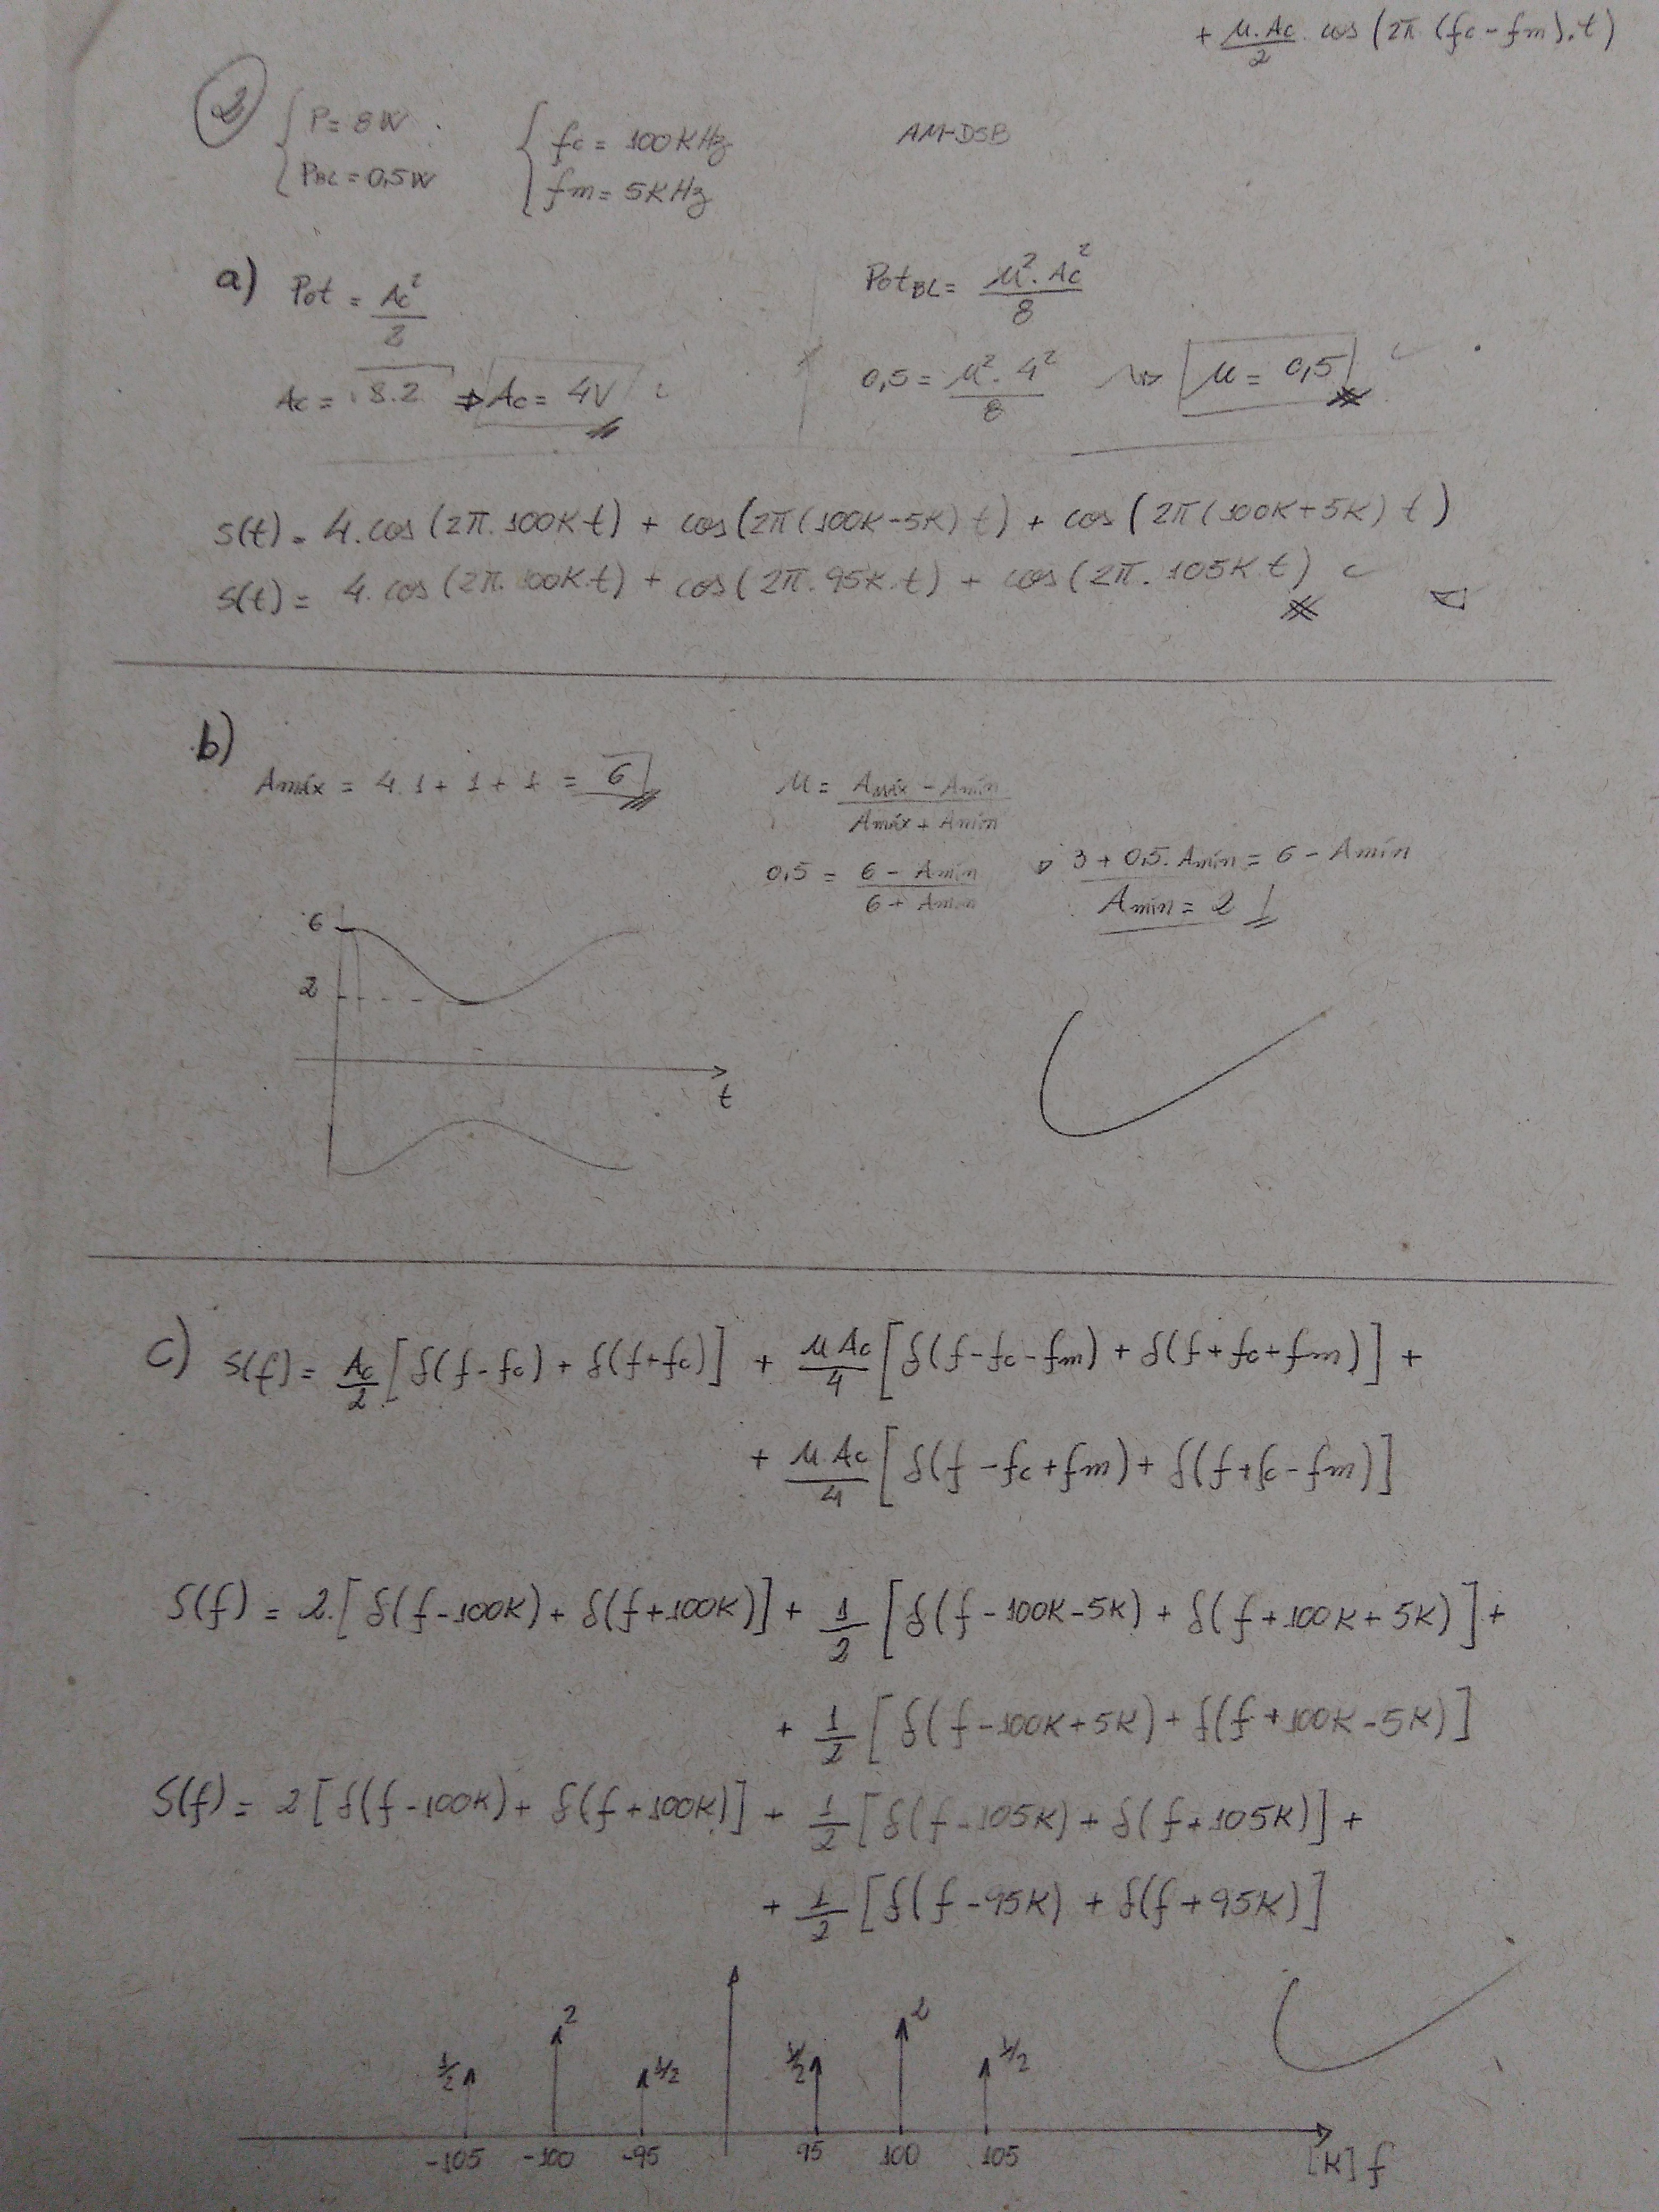 + μ.Ac/2 . cos (2π (fc - fm).t)
2
P = 8W
PBL = 0,5W
fc = 100KHz
fm = 5KHz
AM-DSB
a) Pot = Ac²/2
Ac = √8.2 ⇒ Ac = 4V
PotBL = μ². Ac²/8
0,5 = μ². 4²/8 μ = 0,5
S(t) = 4.cos (2π.100K t) + cos (2π (100K-5K) t) + cos (2π (100K+5K) t)
S(t) = 4.cos (2π.100K.t) + cos (2π.95K.t) + cos (2π.105K t)
b)
Amáx = 4.1 + 1 + 1 = 6
μ = Amáx - Amín/Amáx + Amín
0,5 = 6 - Amín/6 + Amín
3 + 0,5.Amín = 6 - Amín
Amín = 2
6
2
t
c) S(f) = Ac/2 [δ(f-fc) + δ(f+fc)] + μ Ac/4 [δ(f-fc-fm) + δ(f+fc+fm)] +
+ μ.Ac/4 [δ(f-fc+fm) + δ(f+fc-fm)]
S(f) = 2.[δ(f-100K) + δ(f+100K)] + 1/2 [δ(f-100K-5K) + δ(f+100K+5K)] +
+ 1/2 [δ(f-100K+5K) + δ(f+100K-5K)]
S(f) = 2 [δ(f-100K) + δ(f+100K)] + 1/2 [δ(f-105K) + δ(f+105K)] +
+ 1/2 [δ(f-95K) + δ(f+95K)]
1/2 2 1/2 1/2 2 1/2
-105 -100 -95 95 100 105
[K] f